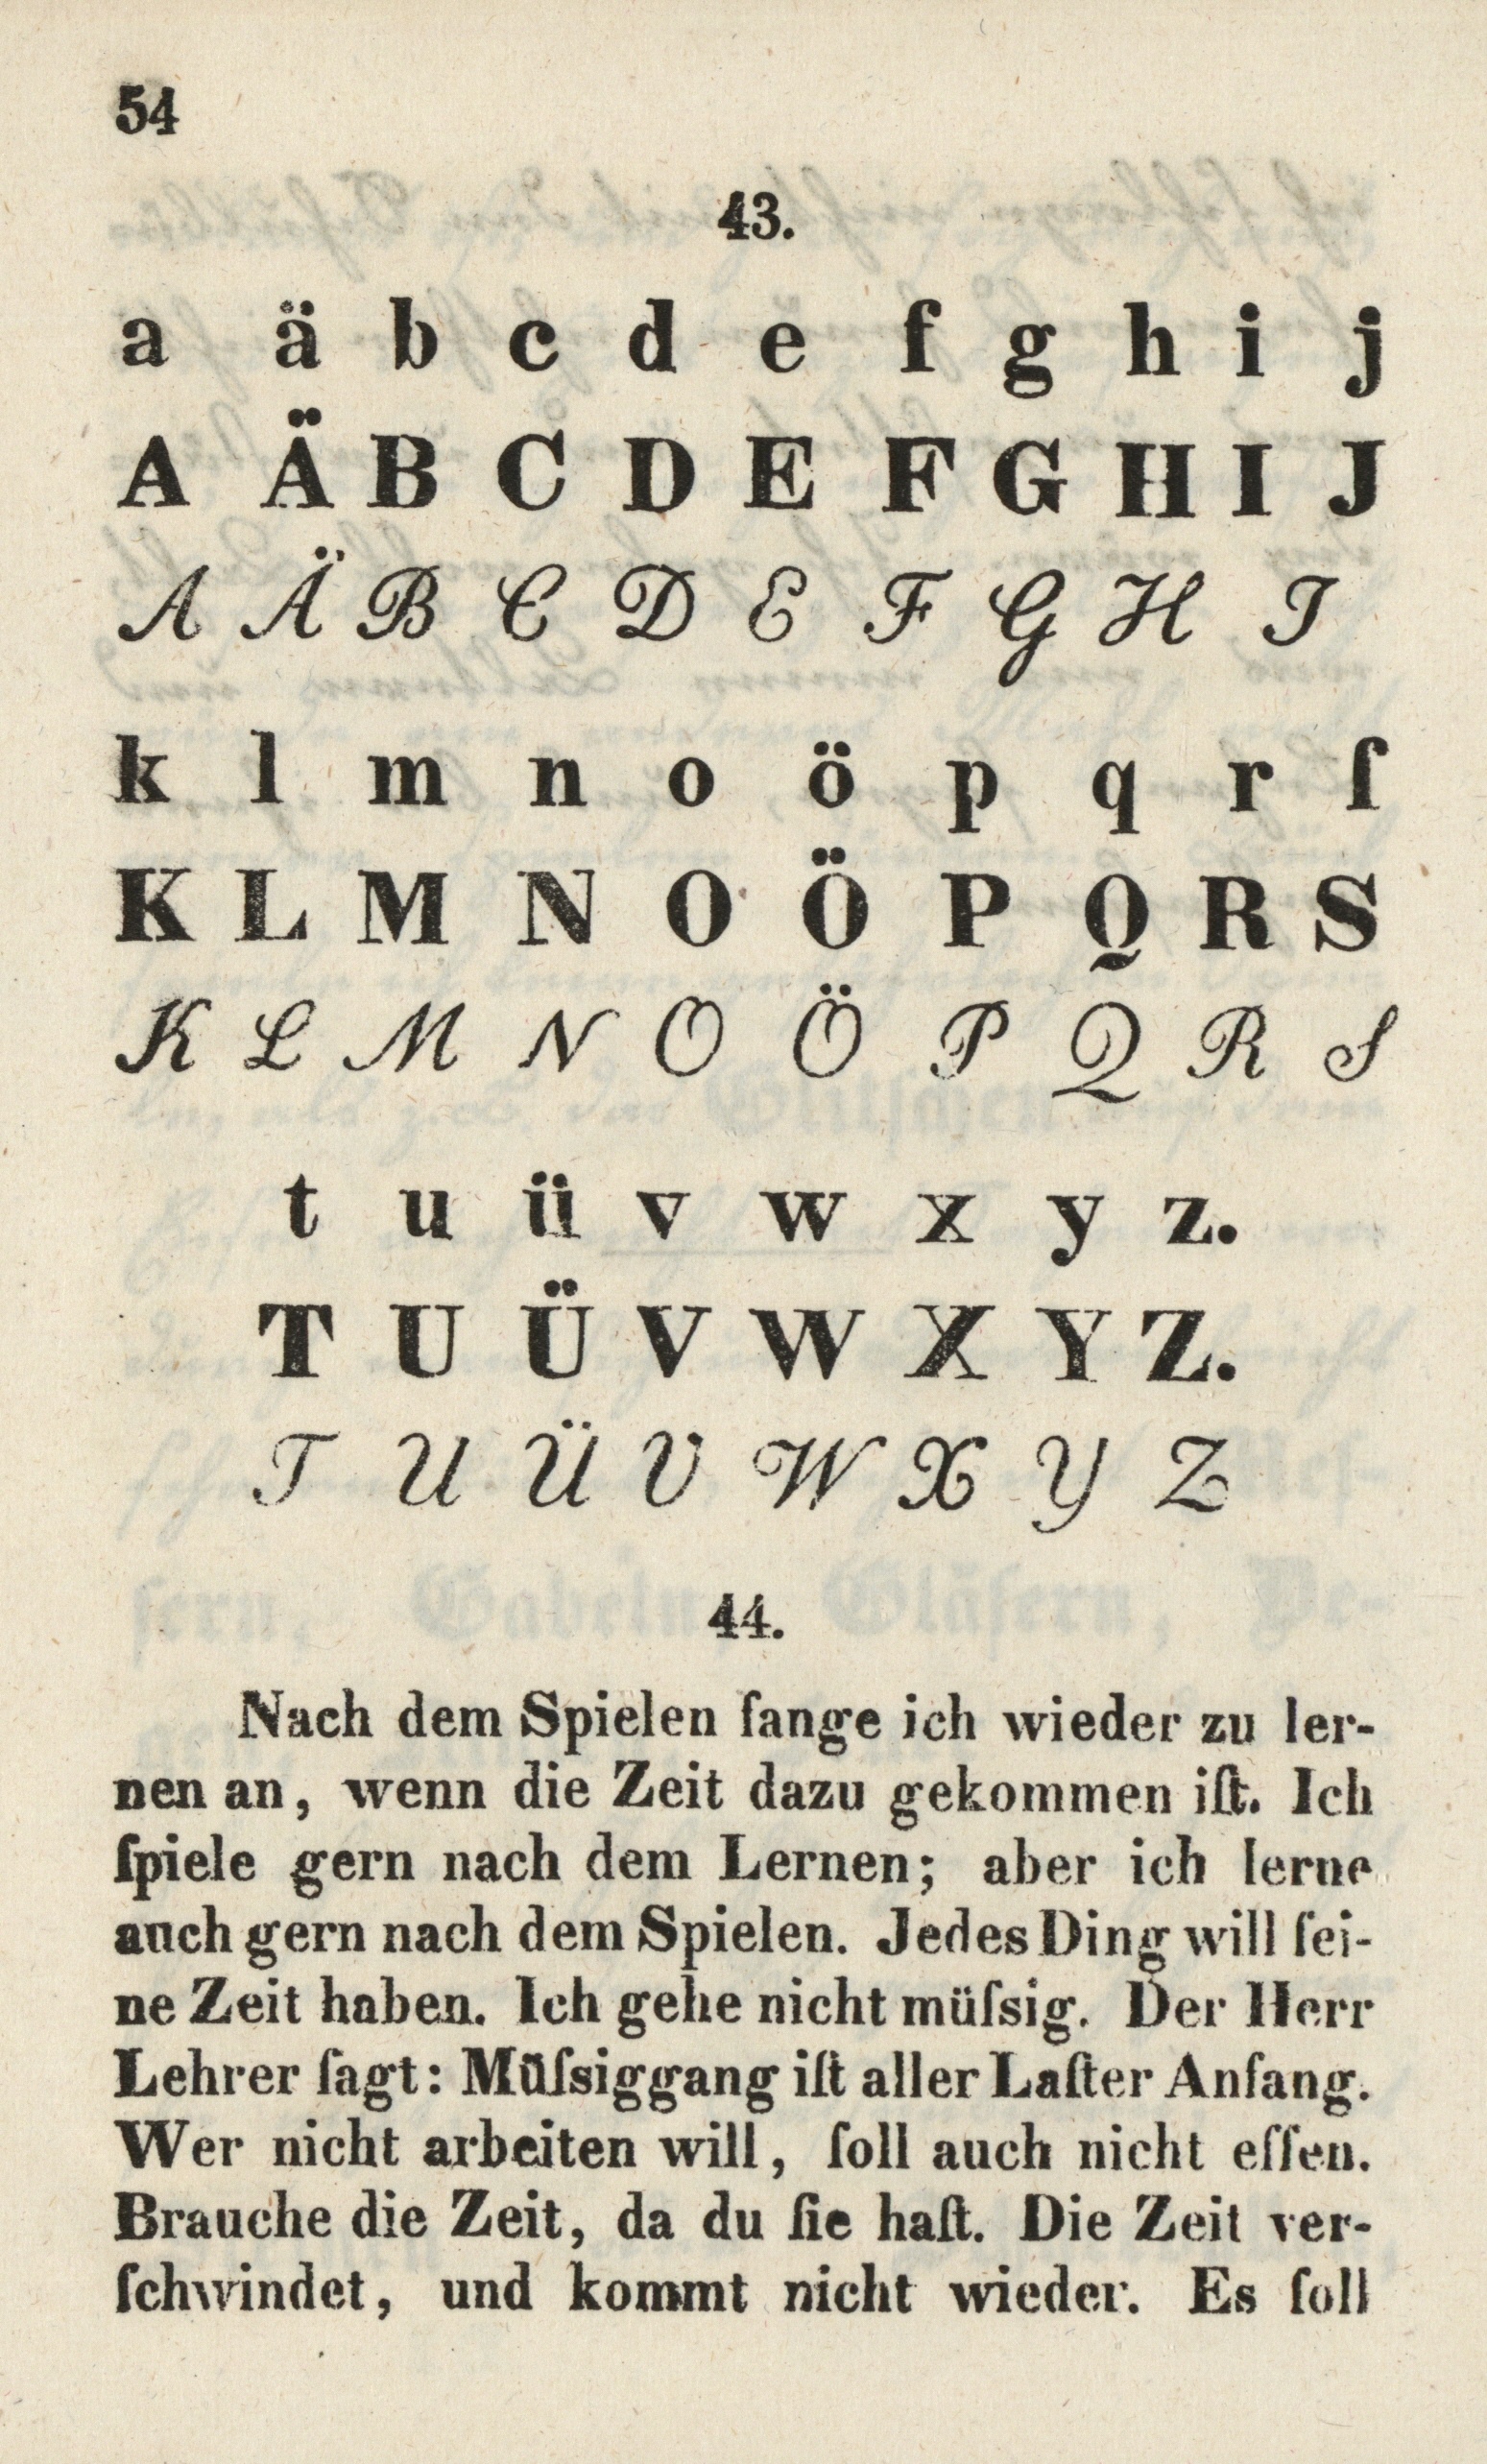 54
43.
a ä b c d e f g h i j
A Ä B C D E F G H I J
A Ä B C D E F G H I
k l m n o ö p q r ſ
K L M N O Ö P Q R S
K L M N O Ö P Q R S
t u ü v w x y z.
T U Ü V W X Y Z.
T U Ü V W X Y Z
44.
Nach dem Spielen fange ich wieder zu ler-
nen an, wenn die Zeit dazu gekommen iſt. Ich
ſpiele gern nach dem Lernen; aber ich lerne
auch gern nach dem Spielen. Jedes Ding will ſei-
ne Zeit haben. Ich gehe nicht müſsig. Der Herr
Lehrer ſagt: Müſsiggang iſt aller Laſter Anfang.
Wer nicht arbeiten will, ſoll auch nicht eſſen.
Brauche die Zeit, da du ſie haſt. Die Zeit ver-
ſchwindet, und kommt nicht wieder. Es ſoll